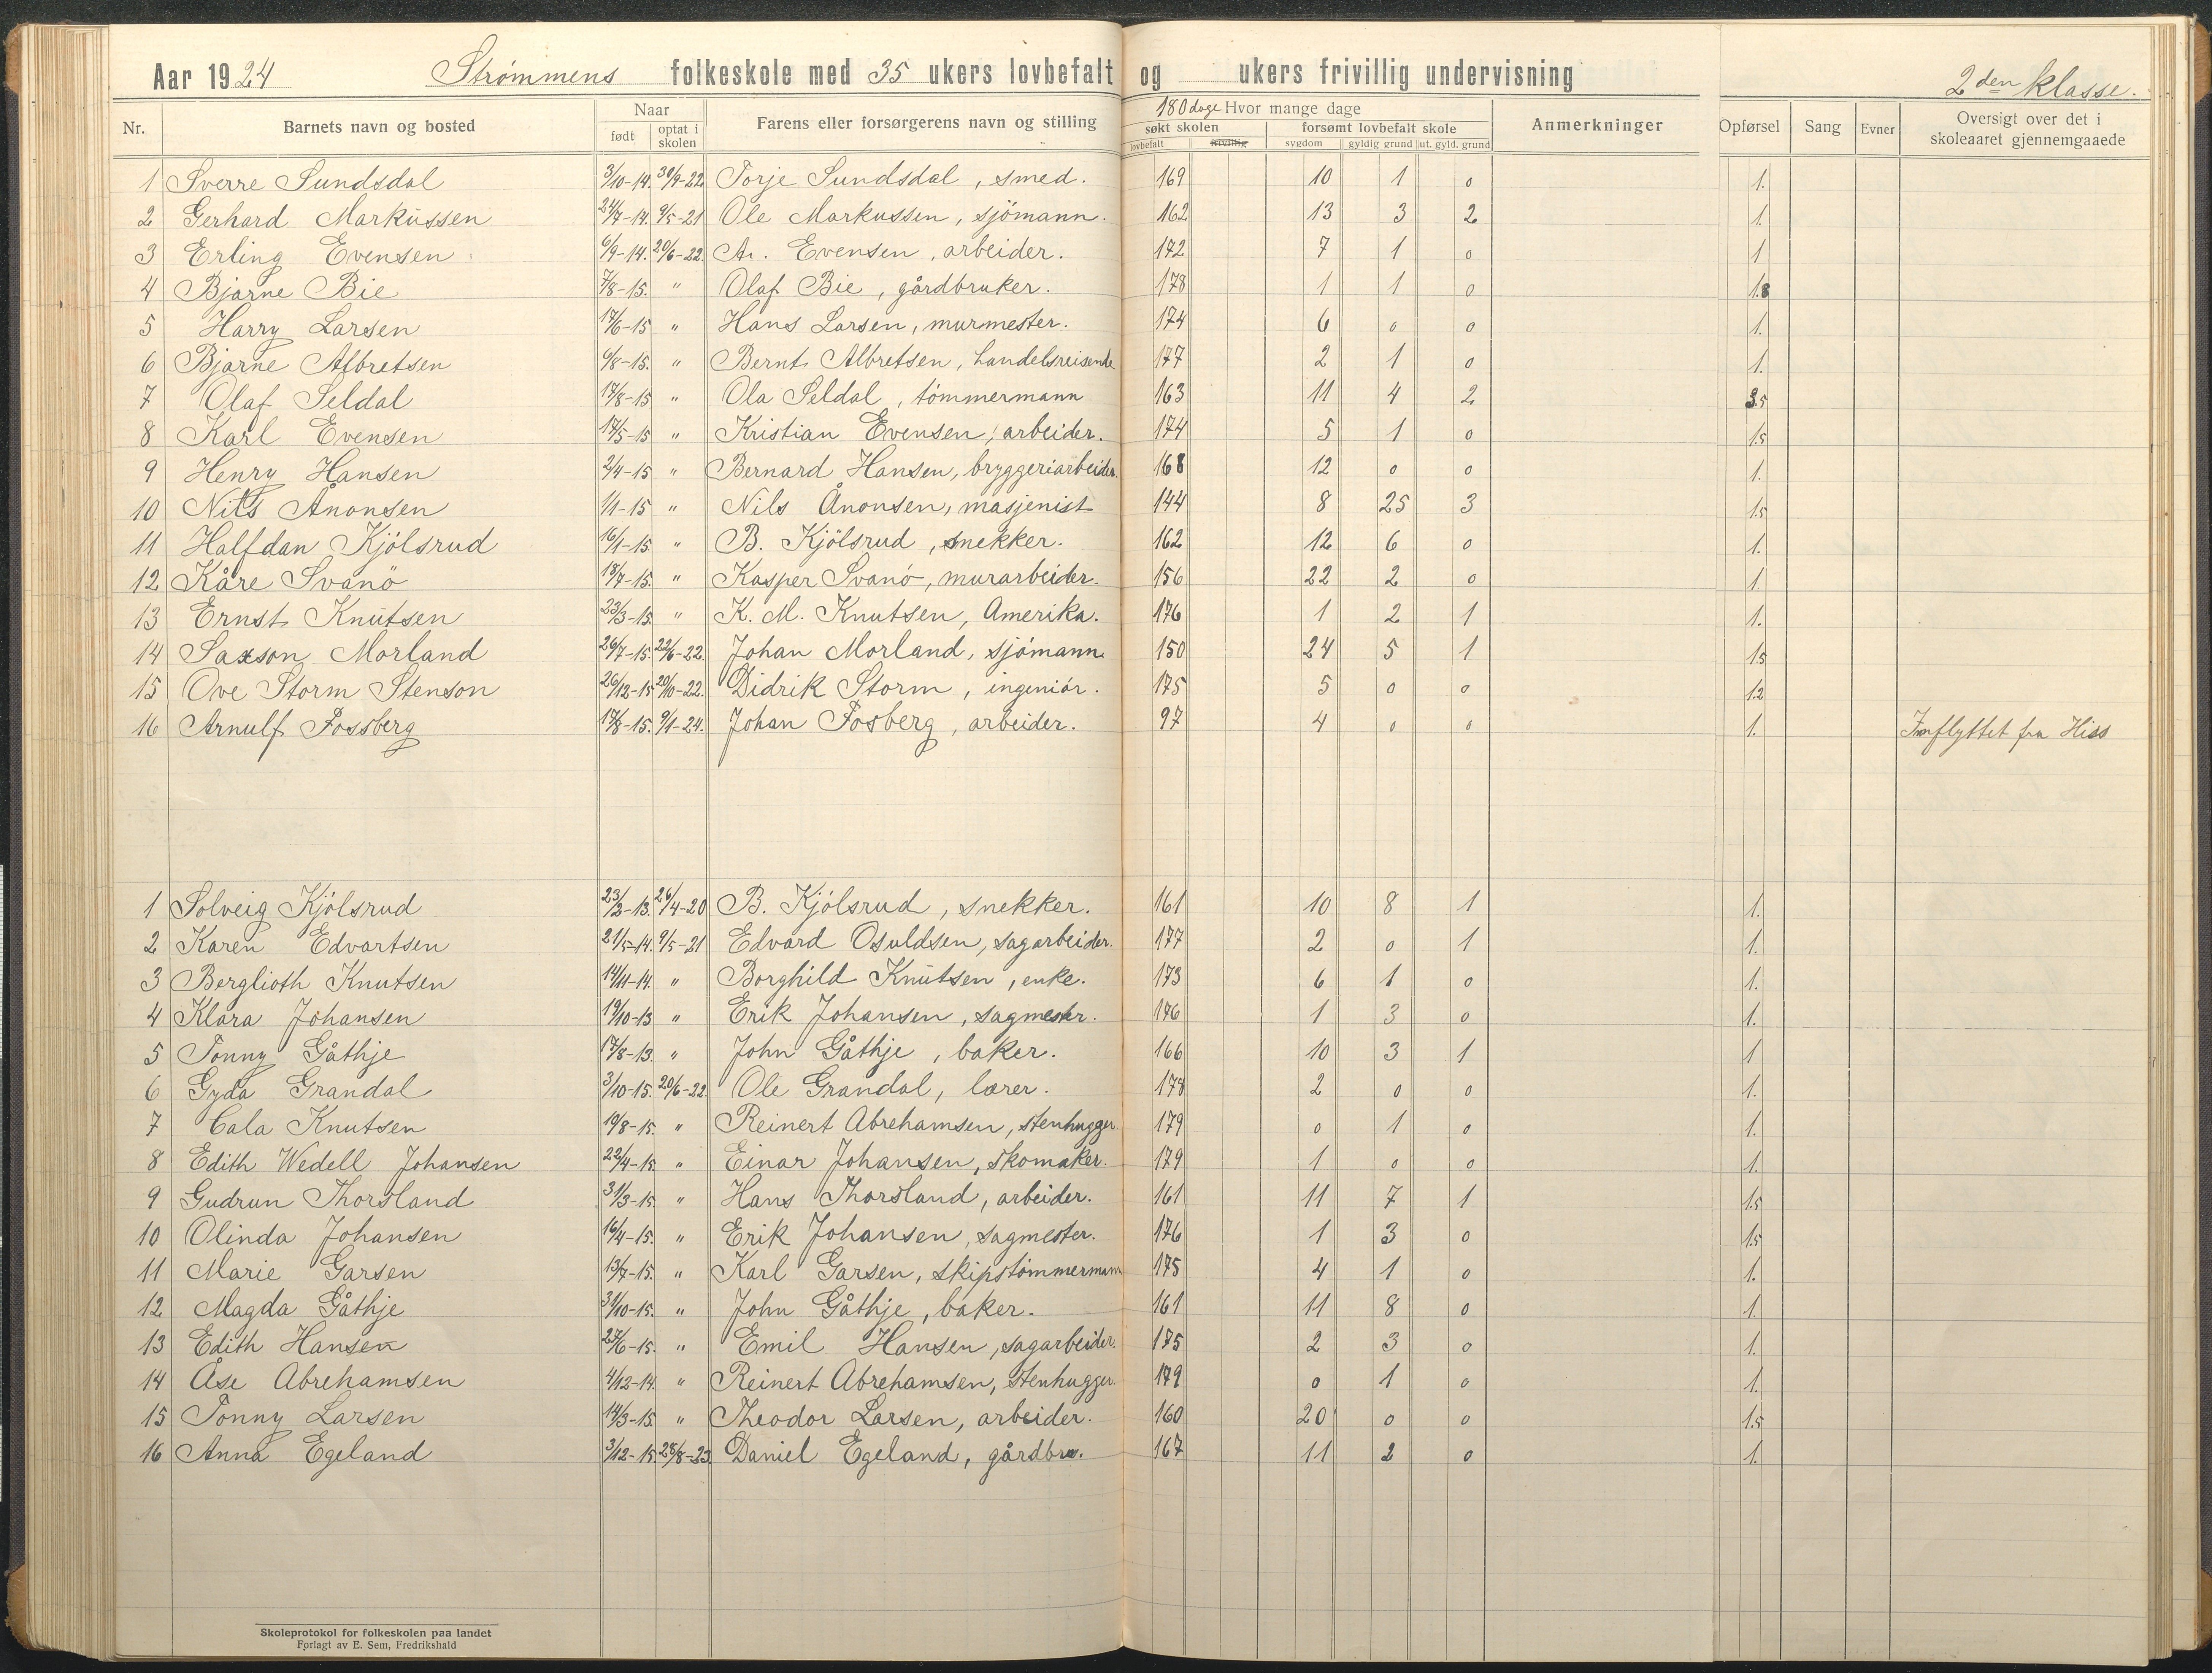 Aar 1924 Strømmens folkeskole med 35 ukers lovbefalt og ukers frivillig undervisning 2den klasse.
Nr. Barnets navn og bosted Naar født optat i skolen Farens eller forsørgerens navn og stilling 180 dage Hvor mange dage søkt skolen lovbefalt frivillig forsømt lovbefalt skole sygdom gyldig grund ut. gyld. grund Anmerkninger Opførsel Sang Evner Oversigt over det i skoleaaret gjennemgaaede
1 Sverre Sundsdal 3/10-14. 30/9-22 Torje Sundsdal, smed. 169 10 1 0 1.
2 Gerhard Markussen 24/7-14. 9/5-21 Ole Markussen, sjömann. 162 13 3 2 1.
3 Erling Evensen 6/9-14. 20/6-22. A. Evensen, arbeider. 172 7 1 0 1
4 Bjarne Bie 7/8-15. " Olaf Bie, gårdbruker. 178 1 1 0 1.8
5 Harry Larsen 17/6-15 " Hans Larsen, murmester. 174 6 0 0 1.
6 Bjarne Albretsen 6/8-15. " Bernt Albretsen, handelsreisende 177 2 1 0 1.
7 Olaf Seldal 17/8-15 " Ola Seldal, tömmermann 163 11 4 2 3.5
8 Karl Evensen 17/5-15 " Kristian Evensen, arbeider. 174 5 1 0 1.5
9 Henry Hansen 2/4-15 " Bernard Hansen, bryggeriarbeider 168 12 0 0 1.
10 Nils Ånonsen 1/1-15 " Nils Ånonsen, masjenist 144 8 25 3 1.5
11 Halfdan Kjölsrud 16/1-15. " B. Kjölsrud, snekker. 162 12 6 0 1.
12 Kåre Svanö 18/7-15. " Kasper Svanö, murarbeider. 156 22 2 0 1.
13 Ernst Knutsen 23/3-15. " K. M. Knutsen, Amerika. 176 1 2 1 1.
14 Saxson Morland 26/7-15. 22/6-22. Johan Morland, sjömann. 150 24 5 1 1.5
15 Ove Storm Stenson 26/12-15 20/10-22. Didrik Storm, ingeniör. 175 5 0 0 1.2
16 Arnulf Fossberg 17/8-15. 9/1-24. Johan Fosberg, arbeider. 97 4 0 0 1. Innflyttet fra Hiss
1 Solveig Kjölsrud 23/2-13. 26/4-20 B. Kjölsrud, snekker. 161 10 8 1 1.
2 Karen Edvartsen 21/5-14. 9/5-21 Edvard Osuldsen, sagarbeider. 177 2 0 1 1.
3 Berglioth Knutsen 14/11-14. " Borghild Knutsen, enke. 173 6 1 0 1.
4 Klara Johansen 19/10-13 " Erik Johansen, sagmester. 176 1 3 0 1.
5 Tonny Gåthje 17/8-13. " John Gåthje, baker. 166 10 3 1 1
6 Gyda Grandal 3/10-15. 20/6-22. Ole Grandal, lærer. 178 2 0 0 1.
7 Cala Knutsen 19/8-15. " Reinert Abrehamsen, stenhugger. 179 0 1 0 1.
8 Edith Wedell Johansen 22/4-15 " Einar Johansen, skomaker. 179 1 0 0 1.
9 Gudrun Thorsland 31/3-15. " Hans Thorsland, arbeider. 161 11 7 1 1.5
10 Olinda Johansen 16/4-15. " Erik Johansen, sagmester. 176 1 3 0 1.5
11 Marie Garsen 13/7-15. " Karl Garsen, skipstömmermann 175 4 1 0 1.
12 Magda Gåthje 31/10-15. " John Gåthje, baker. 161 11 8 0 1.
13 Edith Hansen 27/6-15. " Emil Hansen, sagarbeider. 175 2 3 0 1.
14 Åse Abrehamsen 4/12-14. " Reinert Abrehamsen, stenhugger. 179 0 1 0 1.
15 Tonny Larsen 14/3-15 " Theodor Larsen, arbeider. 160 20 0 0 1.5
16 Anna Egeland 3/12-15 28/8-23. Daniel Egeland, gårdbr. 167 11 2 0 1.
Skoleprotokol for folkeskolen paa landet
Forlagt av E. Sem, Fredrikshald